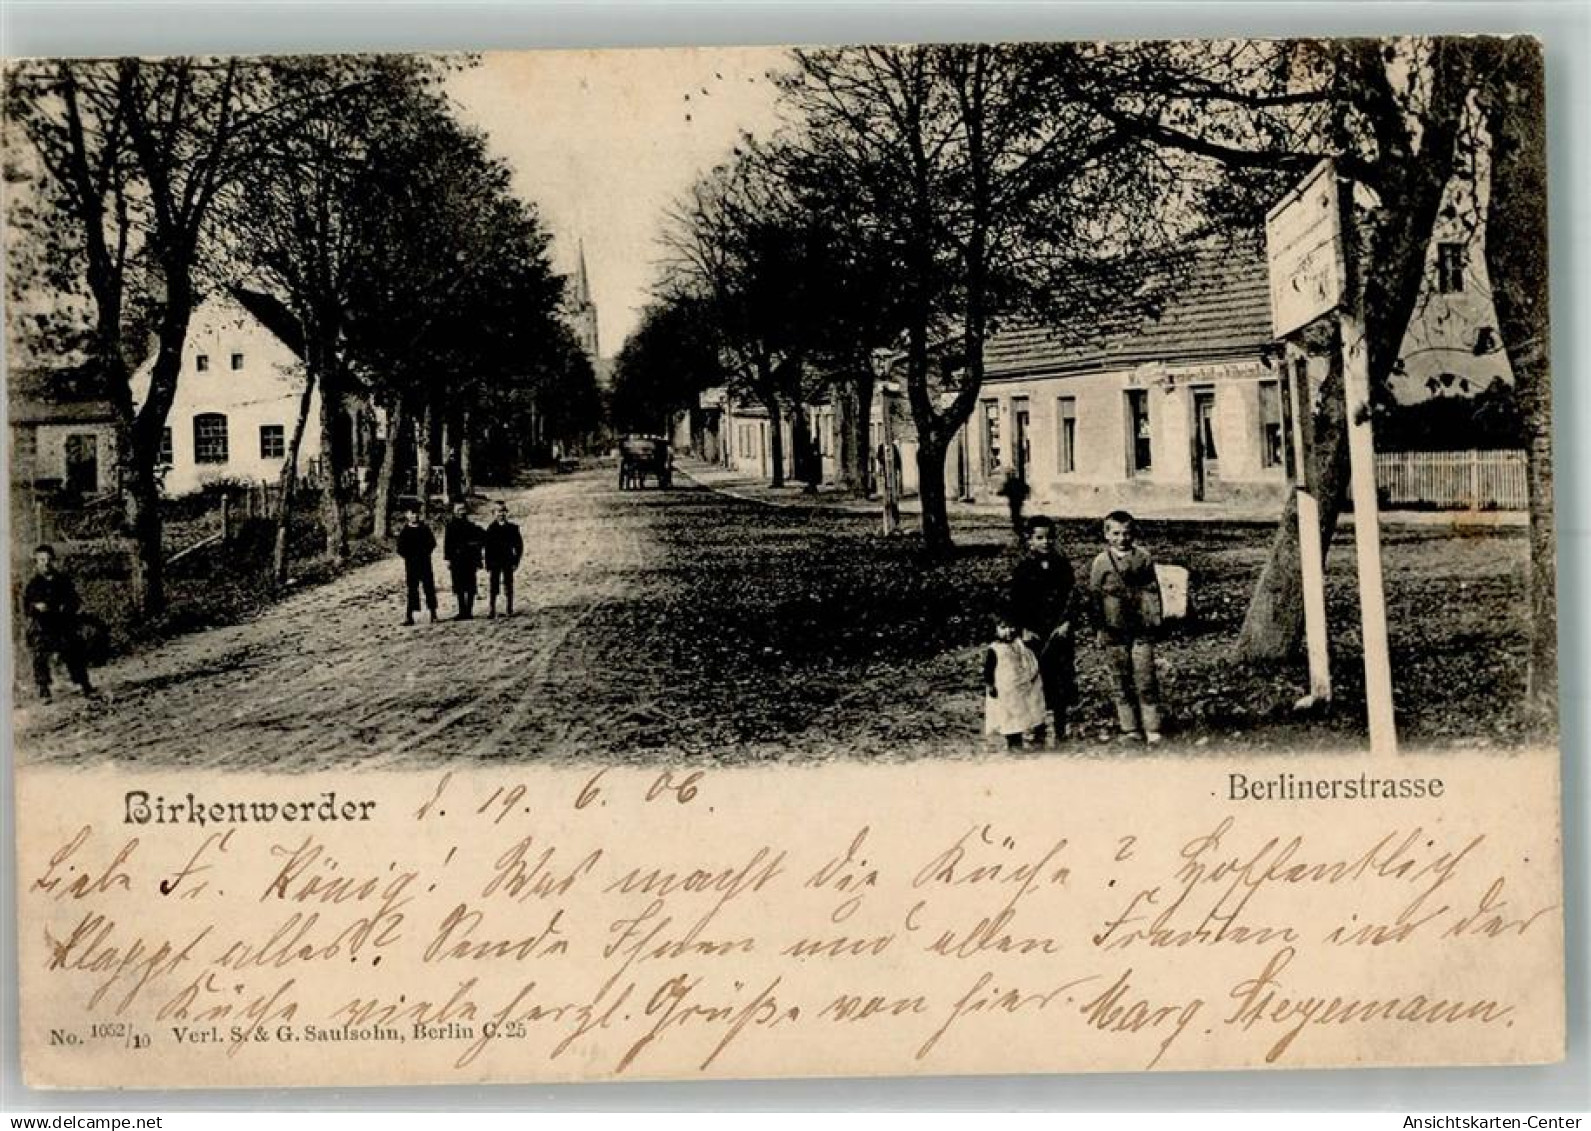 Birkenwerder d. 19. 6. 06.
Berlinerstrasse
Liebe Fr. König! Was macht die Küche? Hoffentlich
klappt alles? Sende Ihnen und allen Frauen in der
Küche viele herzl. Grüße von hier. Marg. Stegemann.
No. 1052/10 Verl. S. & G. Saulsohn, Berlin C. 25
www.delcampe.net
Ansichtskarten-Center